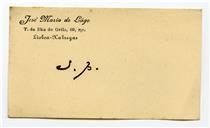 José Maria do Lago
T. da Ilha do Grilo, 69, r/c.
Lisboa-Xabregas
J. p.